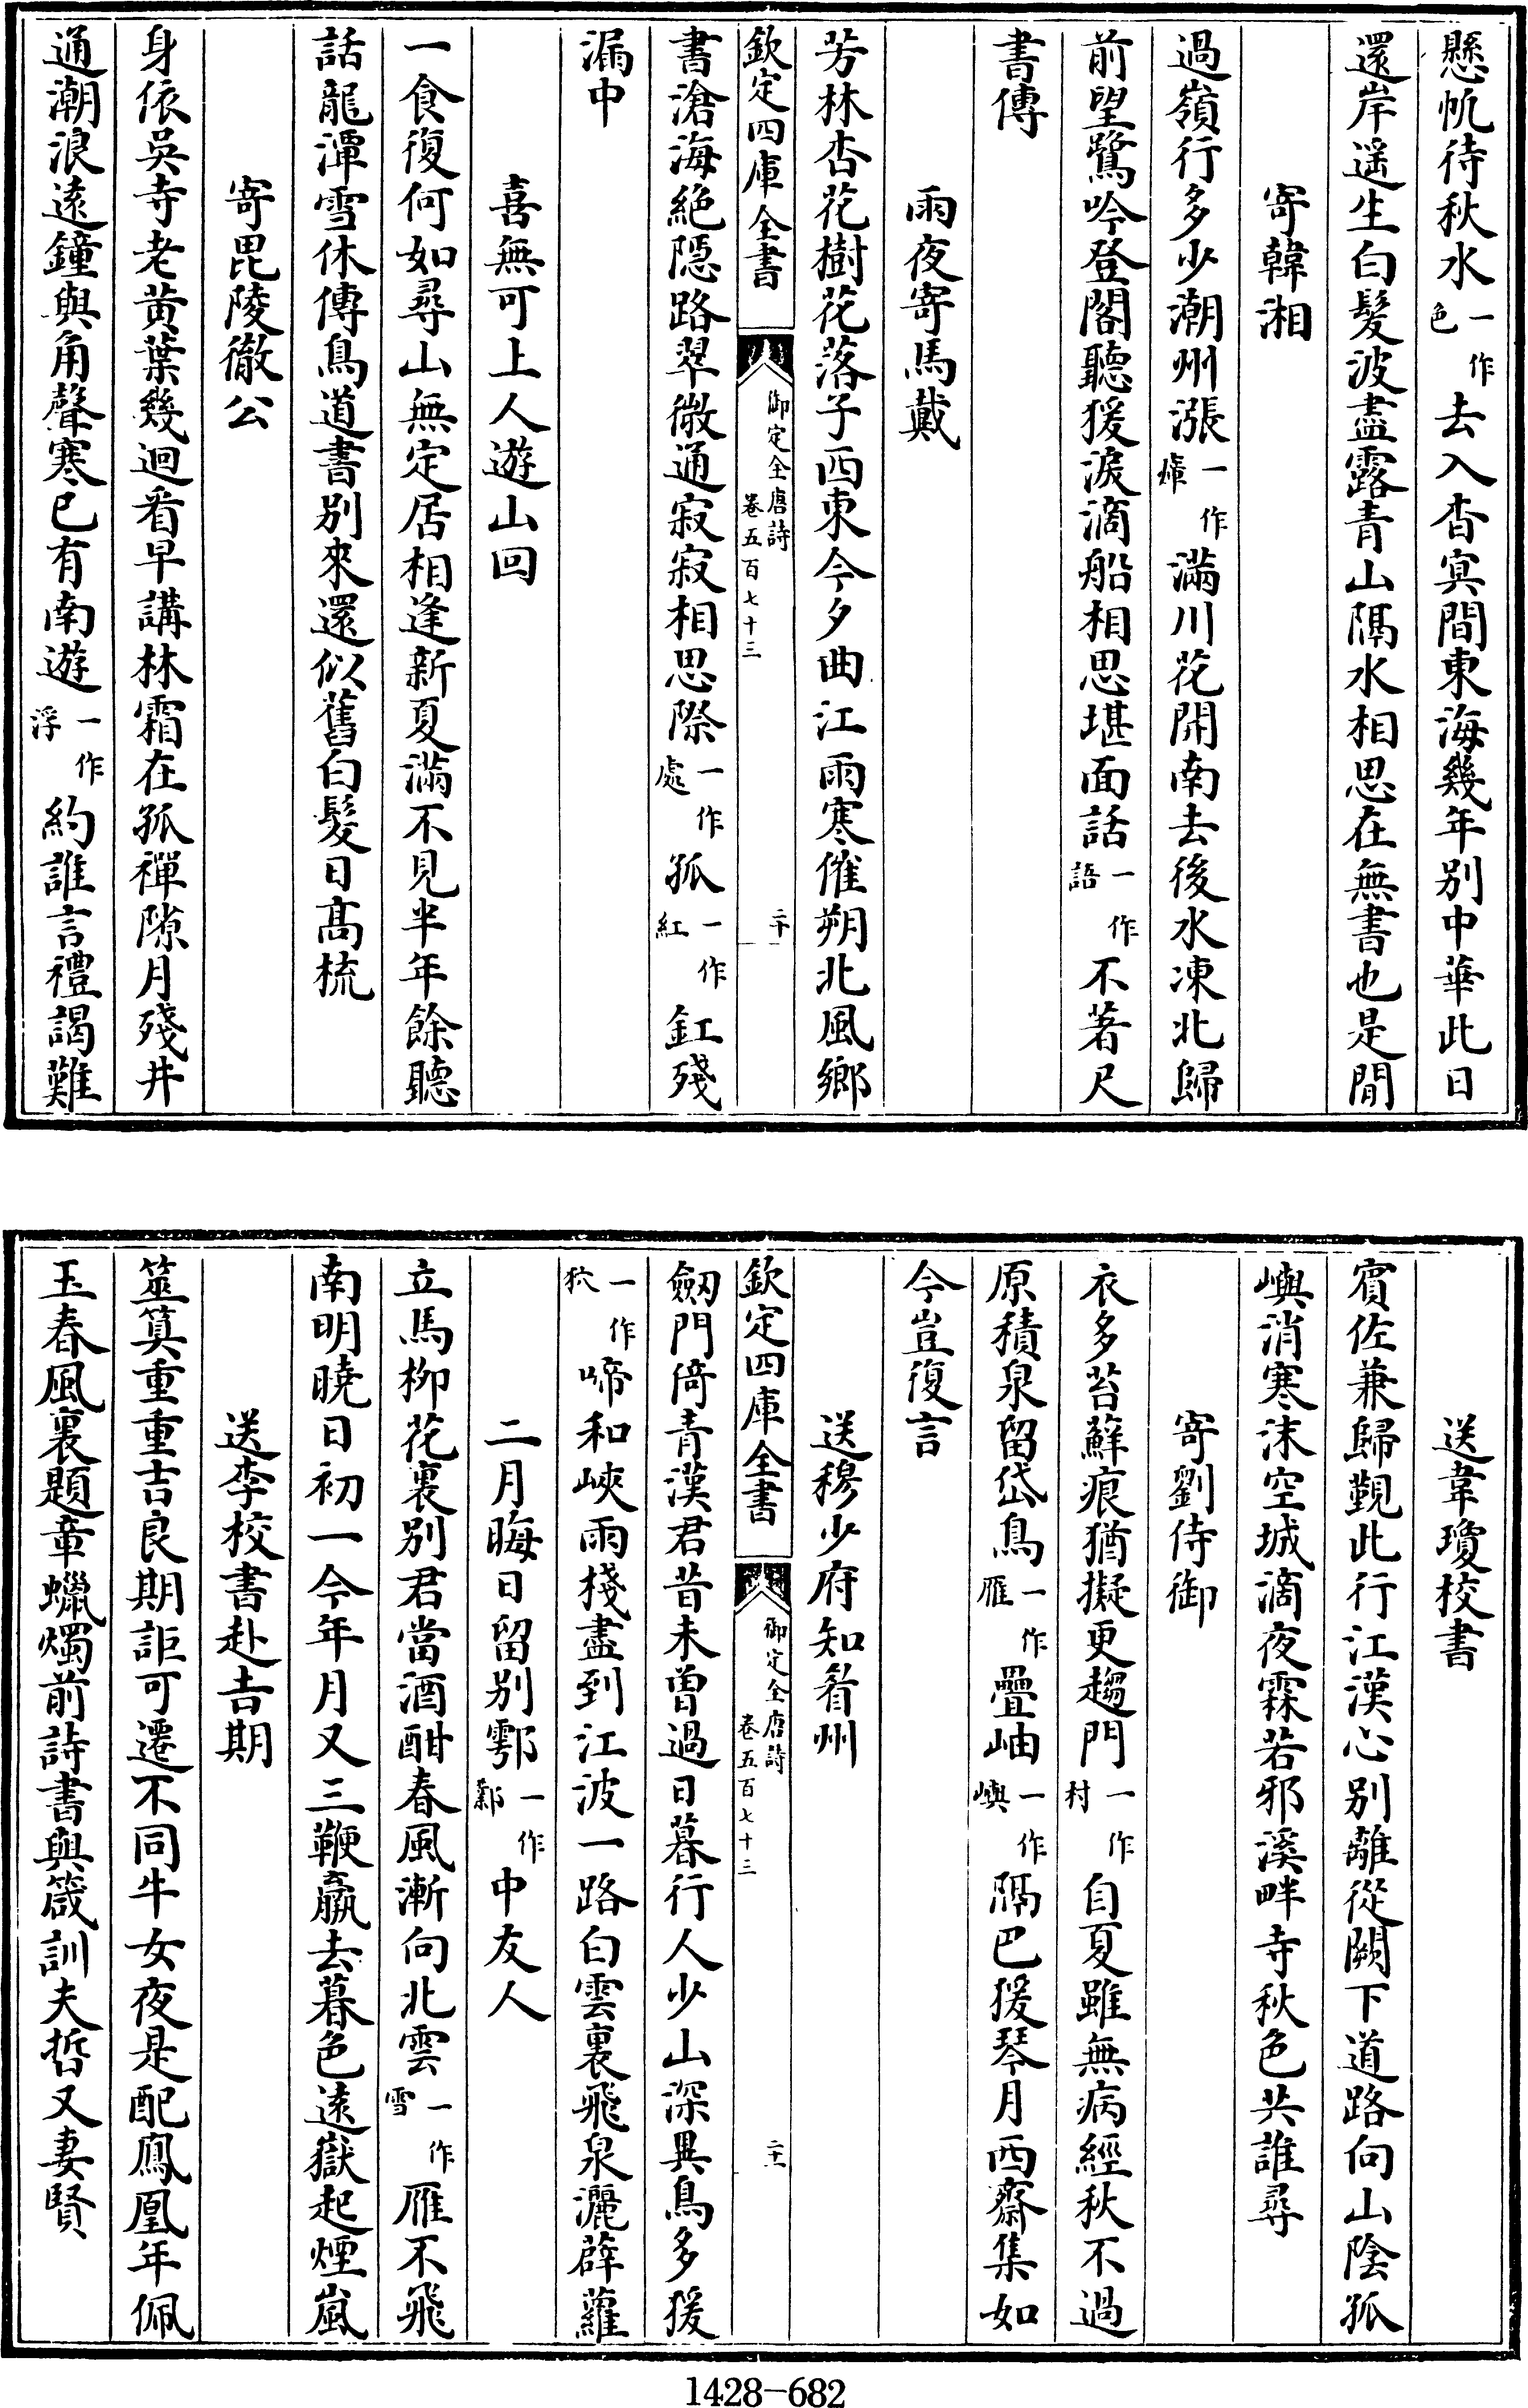 懸帆待秋水一作色去入杳冥間東海幾年别中華此日
還岸遥生白髮波盡露青山隔水相思在無書也是閒
寄韓湘
過嶺行多少潮州漲一作瘴滿川花開南去後水凍北歸
前望鷺吟登閣聽猨淚滴船相思堪面話一作語不著尺
書傳
雨夜寄馬戴
芳林杏花樹花落子西東今夕曲江雨寒催朔北風鄉
欽定四庫全書
御定全唐詩
卷五百七十三
二十
書滄海絶隠路翠微通寂寂相思際一作處孤一作紅釭殘
漏中
喜無可上人遊山回
一食復何如尋山無定居相逢新夏滿不見半年餘聽
話龍潭雪休傳鳥道書别來還似舊白髮日髙梳
寄毘陵徹公
身依吳寺老黄葉幾迴看早講林霜在孤禪隙月殘井
通潮浪遠鐘與角聲寒已有南遊一作浮約誰言禮謁難
送韋瓊校書
賓佐兼歸覲此行江漢心别離從闕下道路向山陰孤
嶼消寒沫空城滴夜霖若邪溪畔寺秋色共誰尋
寄劉侍御
衣多苔蘚痕猶擬更趨門一作村自夏雖無病經秋不過
原積泉留岱鳥一作雁疊岫一作嶼隔巴猨琴月西齋集如
今豈復言
送穆少府知眘州
欽定四庫全書
御定全唐詩
卷五百七十三
二十一
劒門倚青漢君昔未曾過日暮行人少山深異鳥多猨
一作狖啼和峽雨棧盡到江波一路白雲裏飛泉灑薜蘿
二月晦日留别鄠一作鄴中友人
立馬栁花裏别君當酒酣春風漸向北雲一作雪雁不飛
南明曉日初一今年月又三鞭羸去暮色遠嶽起煙嵐
送李校書赴吉期
筮算重重吉良期詎可遷不同牛女夜是配鳳凰年佩
玉春風裏題章蠟燭前詩書與箴訓夫哲又妻賢
1428-682